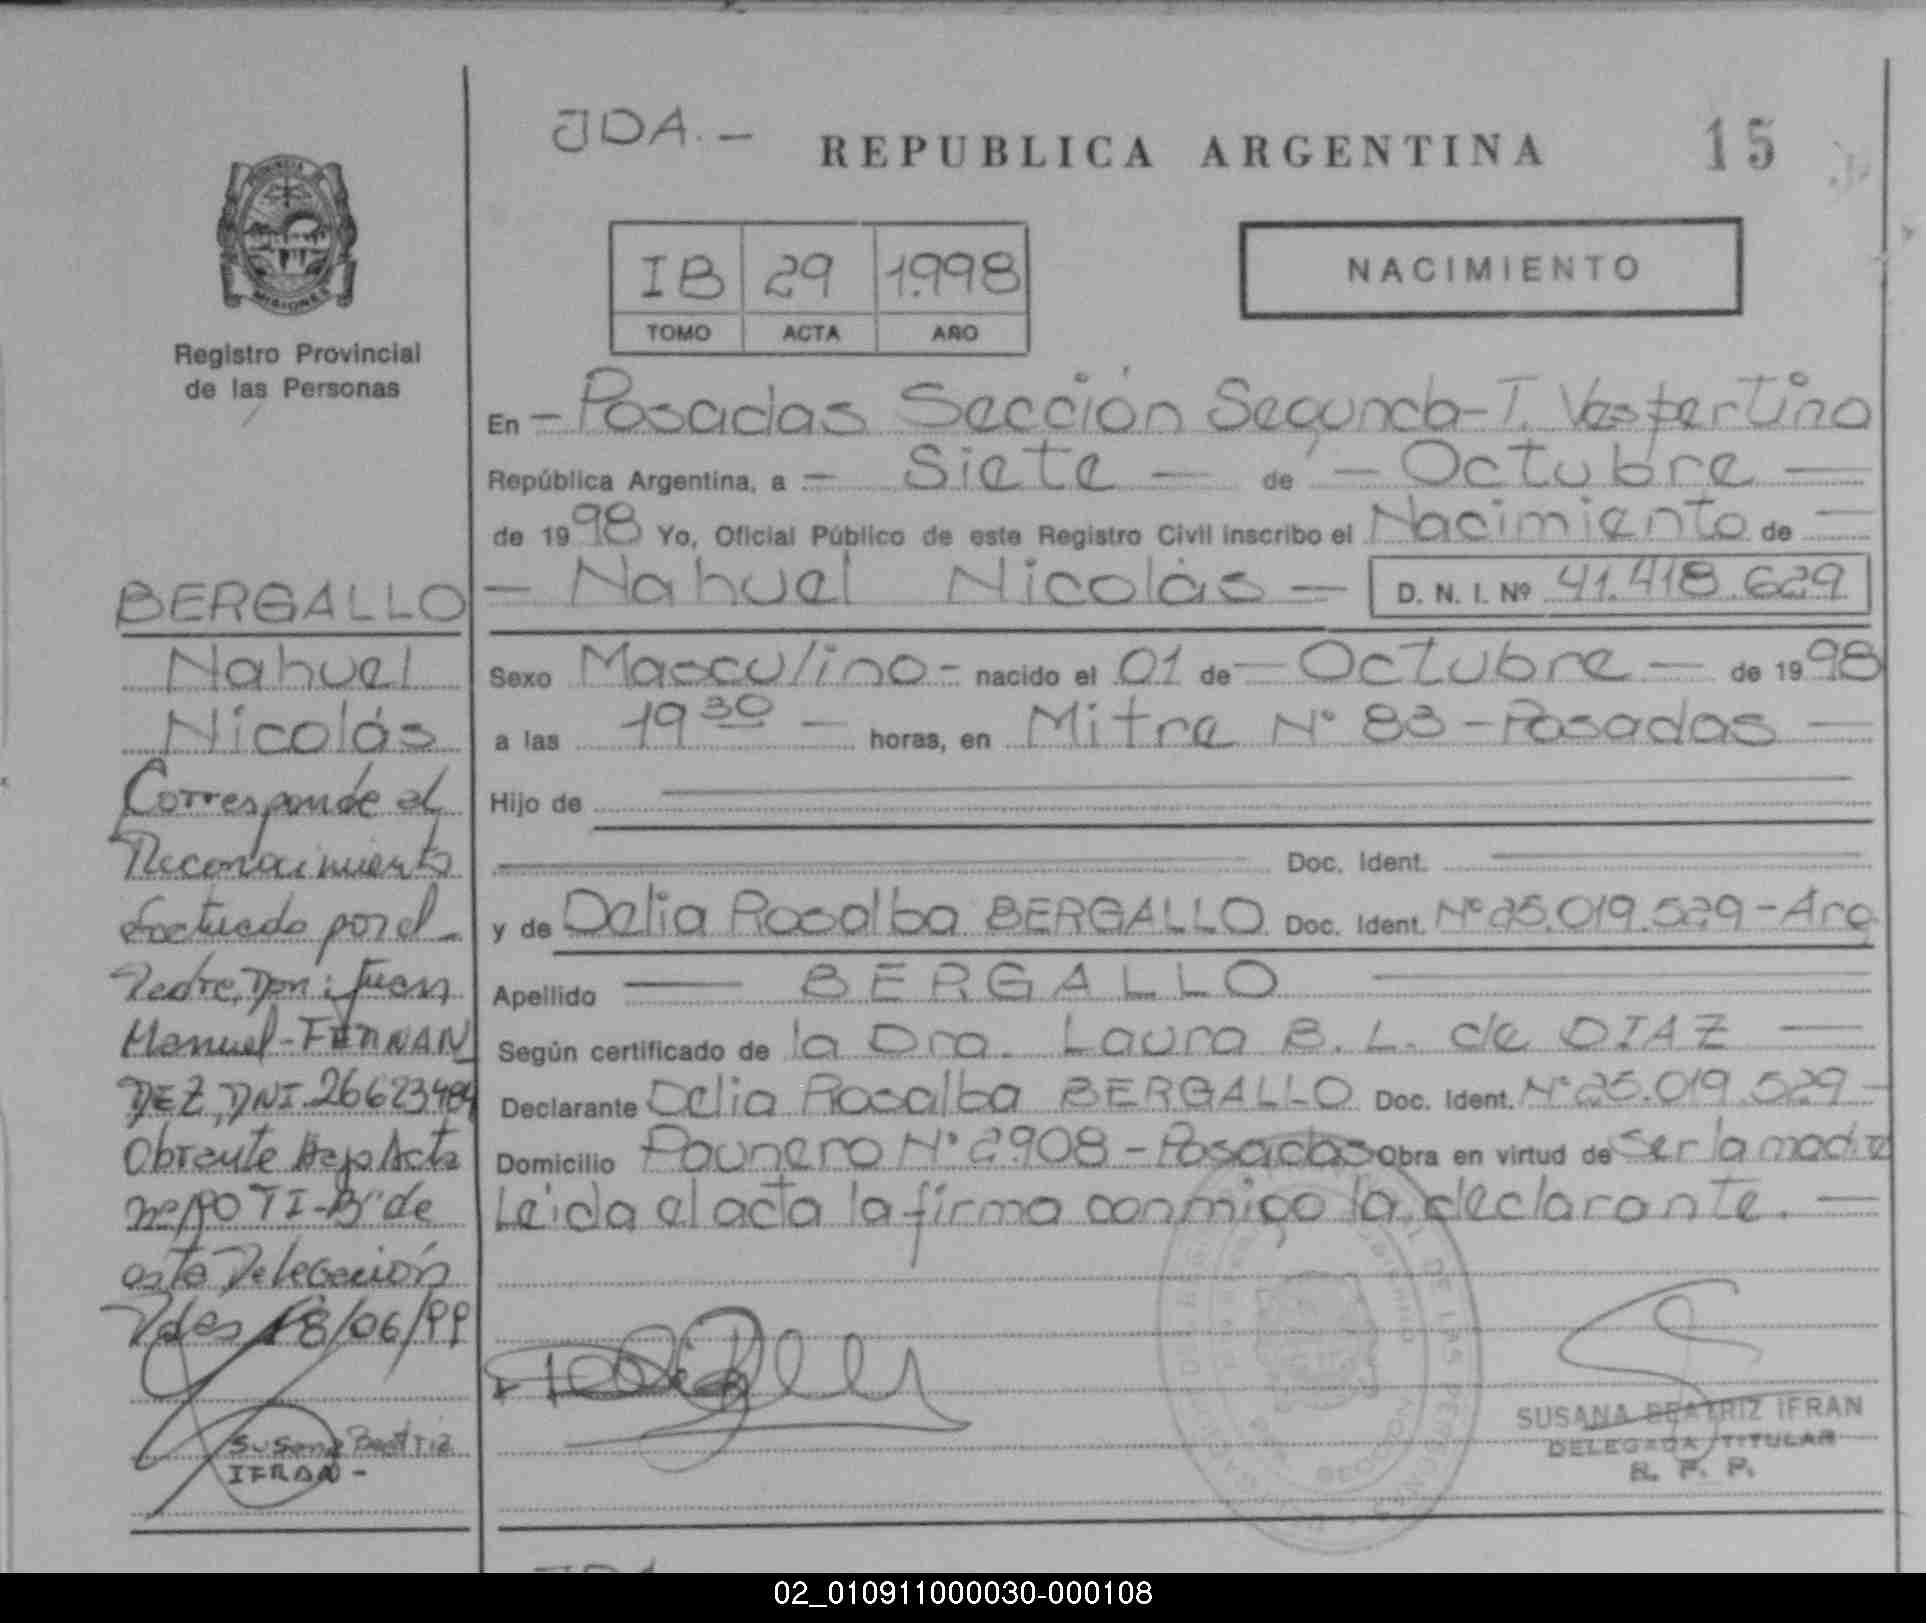 JDA.-
REPUBLICA ARGENTINA
15
MISIONES
Registro Provincial
de las Personas
IB 29 1.998
TOMO ACTA AÑO
NACIMIENTO
En - Posadas Sección Segunda - T. Vespertino
República Argentina, a - Siete - de - Octubre -
de 1998 Yo, Oficial Público de este Registro Civil inscribo el Nacimiento de -
- Nahuel Nicolás - D. N. I. Nº 41.418.629
Sexo Masculino - nacido el 01 de - Octubre - de 1998
a las 19 30 - horas, en Mitre N° 83 - Posadas -
Hijo de
Doc. Ident.
y de Delia Rosalba BERGALLO Doc. Ident. N° 25.019.529 - Arg
Apellido - BERGALLO -
Según certificado de la Dra. Laura B. L. de DIAZ -
Declarante Delia Rosalba BERGALLO Doc. Ident. N° 25.019.529 -
Domicilio Paunero N° 2908 - Posadas Obra en virtud de ser la madre
Leida el acta la firma conmigo la declarante. -
SUSANA BEATRIZ IFRAN
DELEGADA TITULAR
R. P. P.
BERGALLO
Nahuel
Nicolás
Corresponde el
Reconocimiento
efectuado por el -
Padre, Don: Juan
Manuel - FERNAN
DEZ, DNI. 26623484
Obrante Bajo Acta
de
esta Delegación
Pdas 18/06/99
Susana Beatriz
IFRAN -
JDA
02_010911000030-000108